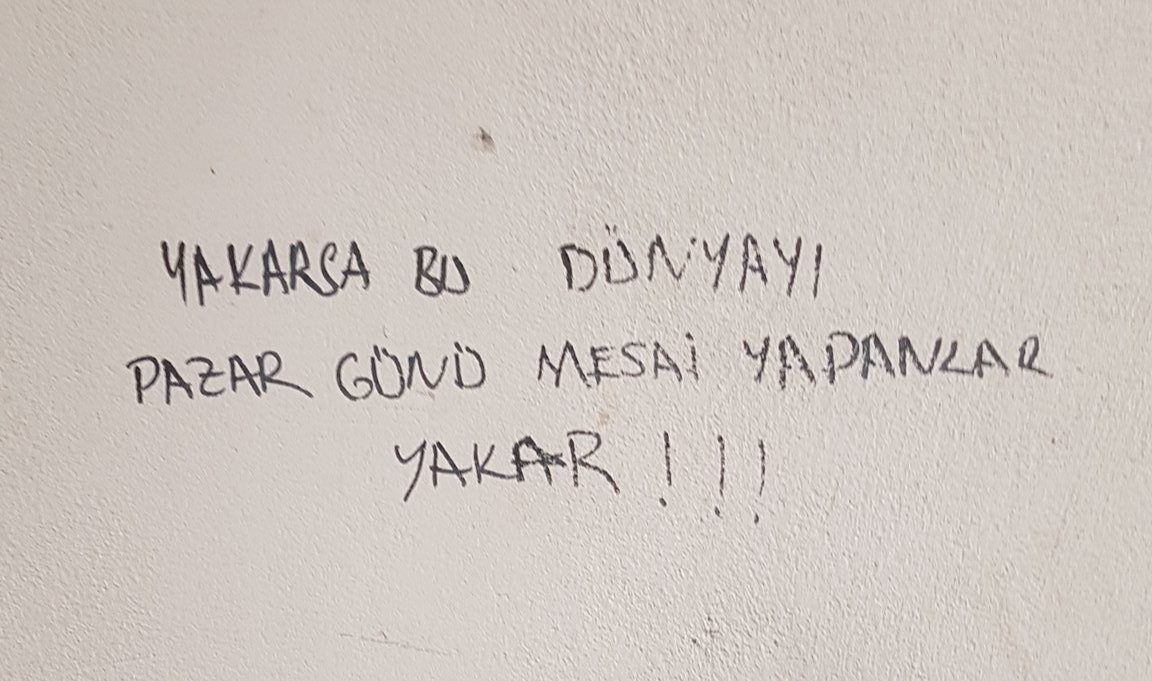 YAKARSA BU DÜNYAYI
PAZAR GÜNÜ MESAİ YAPANLAR
YAKAR !!!